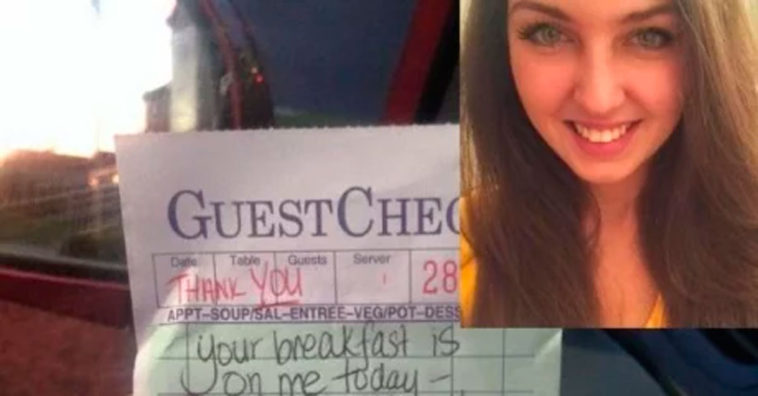 GUESTCHEC
Date Table Guests Server
THANK YOU 28
APPT-SOUP/SAL-ENTREE-VEG/POT-DESS
your breakfast is
on me today -